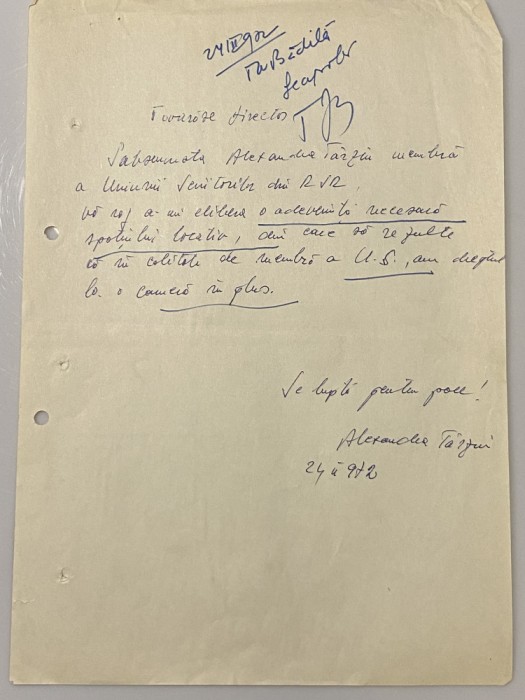 24 III 972
Tov Bădilă
Se aprobă
Tovarășe director
Subsemnata Alexandra Târziu membră
a Uniunii Scriitorilor din RSR,
vă rog a-mi elibera o adeverință necesară
spațiului locativ, din care să rezulte
că în calitate de membră a U.S., am dreptul
la o cameră în plus.
Se luptă pentru pace!
Alexandra Târziu
24 II 972